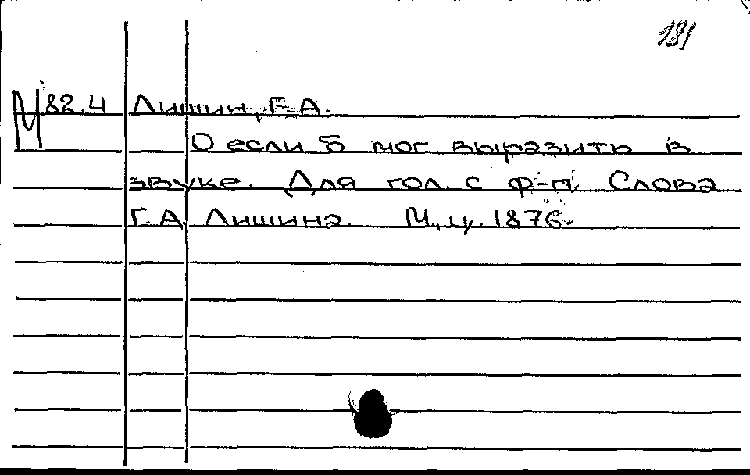 181
М 82.4 Лишин, Г.А.
О если б мог выразить в
звуке. Для гол. с ф-п. Слова
Г.А. Лишина. М, ц. 1876.